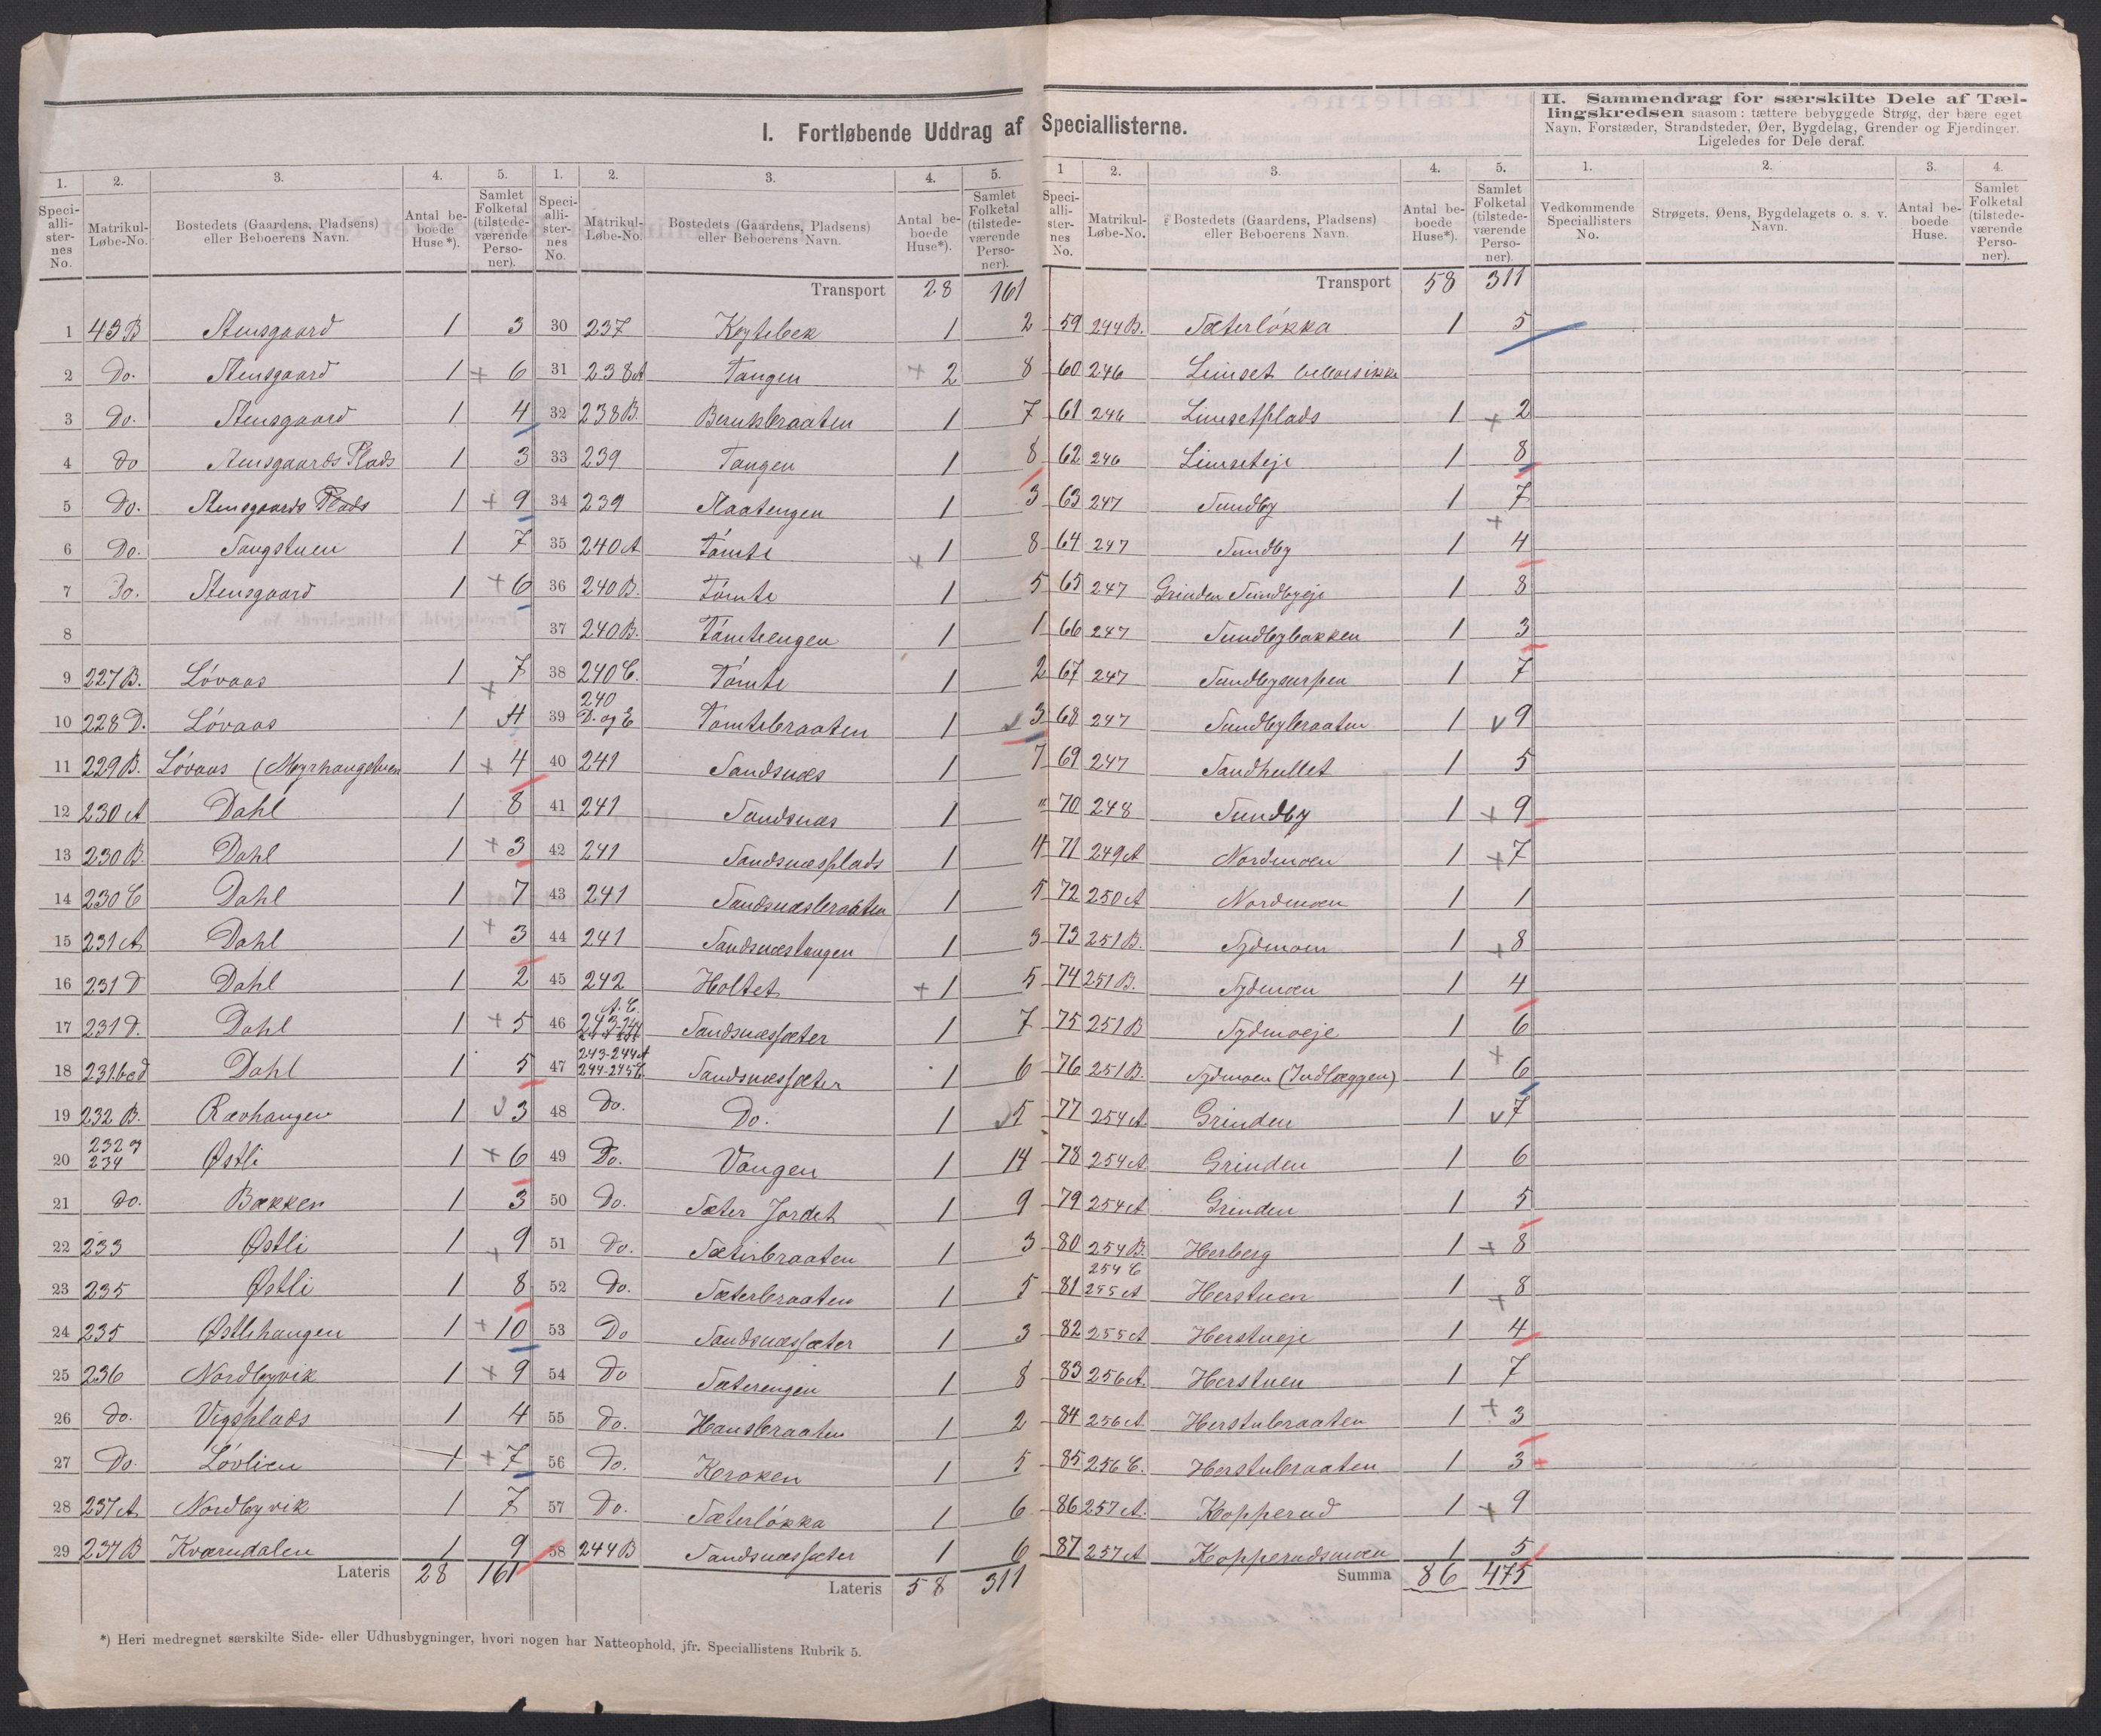 I. Fortløbende Uddrag af Speciallisterne.
1. 2. 3. 4. 5.
Speciallisternes No. Matrikul-Løbe-No. Bostedets (Gaardens, Pladsen) eller Beboerens Navn. Antal beboede Huse*). Samlet Folketal (tilstedeværende Personer).
1 43B Stensgaard 1 3
2 Do. Stensgaard 1 + 6
3 Do. Stensgaard 1 4
4 Do Stensgaards Plads 1 3
5 Do. Stensgaards Plads 1 + 9
6 Do. Tangstuen 1 7
7 Do. Stensgaard 1 + 6
8
9 227B. Løvaas 1 7
10 228D. Løvaas 1 4
11 229B. Løvaas (Myrhaugstuen 1 + 4
12 230A Dahl 1 8
13 230B. Dahl 1 + 3
14 230C Dahl 1 7
15 231A Dahl 1 + 3
16 231D Dahl 1 2
17 231D. Dahl 1 + 5
18 231bcd Dahl 1 5
19 232B. Rævhaugen 1 v 3
20 232 og 234 Østli 1 + 6
21 Do. Bakken 1 3
22 233 Østli 1 + 9
23 235 Østli 1 8
24 235 Østlihaugen 1 + 10
25 236 Nordbyvik 1 + 9
26 Do. Vigsplads 1 4
27 Do. Løvlien 1 + 7
28 237A Nordbyvik 1 7
29 237B Kværndalen 1 9
Lateris 28 161
1. 2. 3. 4. 5.
Speciallisternes No. Matrikul-Løbe-No. Bostedets (Gaardens, Pladsen) eller Beboerens Navn. Antal beboede Huse*). Samlet Folketal (tilstedeværende Personer).
Transport 28 161
30 237 Kytebek 1 2
31 238A Tangen + 2 8
32 238B. Bernkbraaten 1 7
33 239 Tangen 1 8
34 239 Slaatengen 1 3
35 240A Tømte + 1 8
36 240B. Tømte 1 5
37 240B. Tømtengen 1 1
38 240C. Tømte 1 2
39 240 D. og E Tømtebraaten 1 3
40 241 Sandsnæs 1 7
41 241 Sandsnæs 1 "
42 241 Sandsnæsplads 1 4
43 241 Sandsnæsbraaten 1 5
44 241 Sandsnæstangen 1 3
45 242 Holtet + 1 5
46 Sandsnæssæter 1 7
47 243-244A 244-245C Sandsnæssæter 1 6
48 Do. Do. 1 5
49 Do. Vangen 1 14
50 Do. Sæter Jordet 1 9
51 Do. Sæterbraaten 1 3
52 Do. Sæterbraaten 1 5
53 Do Sandsnæssæter 1 3
54 Do Sæterengen 1 8
55 Do. Hansbraaten 1 2
56 Do. Kroken 1 5
57 Do. Sæterløkka 1 6
58 244B Sandsnæssæter 1 6
Lateris 58 311
1 2. 3. 4. 5.
Speciallisternes No. Matrikul-Løbe-No. Bostedets (Gaardens, Pladsen) eller Beboerens Navn. Antal beboede Huse*). Samlet Folketal (tilstedeværende Personer).
Transport 58 311
59 244B. Sæterløkka 1 5
60 246 Limset beboes ikke
61 246 Limsetplads 1 + 2
62 246 Limseteje 1 8
63 247 Sundby 1 7
64 247 Sundby 1 + 4
65 247 Grinden Sundbyeje 1 8
66 247 Sundbybakken 1 3
67 247 Sundbysurpen 1 7
68 247 Sundbybraaten 1 v 9
69 247 Sandhullet 1 5
70 248 Sundby 1 + 9
71 249A Nordmoen 1 + 7
72 250A Nordmoen 1 1
73 251B. Sydmoen 1 + 8
74 251B. Sydmoen 1 4
75 251B Sydmoeje 1 6
76 251B. Sydmoen (Indlæggen) 1 + 6
77 254A Grinden 1 v 7
78 254A Grinden 1 6
79 254A Grinden 1 5
80 254B. Herberg 1 + 8
81 254C 255A Herstuen 1 + 8
82 255A Herstueje 1 4
83 256A. Herstuen 1 7
84 256A Herstubraaten 1 + 3
85 256C. Herstubraaten 1 3
86 257A. Kopperud 1 + 9
87 257A Kopperudsmoen 1 5
Summa 86 475
II. Sammendrag for særskilte Dele af Tællingskredsen saasom: tættere bebyggede Strøg, der bære eget Navn, Forstæder, Strandsteder, Øer, Bygdelag, Grender og Fjerdinger. Ligeledes for Dele deraf.
1. 2. 3. 4.
Vedkommende Speciallisters No. Strøgets, Øens, Bygdelagets o. s. v. Navn. Antal beboede Huse. Samlet Folketal (tilstedeværende Personer).
*) Heri medregnet særskilte Side- eller Udhusbygninger, hvori nogen har Natteophold, jfr. Speciallistens Rubrik 5.